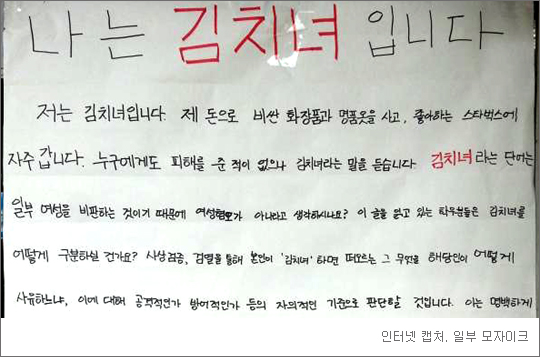 나는 김치녀 입니다
저는 김치녀입니다. 제 돈으로 비싼 화장품과 명품옷을 사고, 좋아하는 스타벅스에
자주 갑니다. 누구에게도 피해를 준 적이 없으나 김치녀라는 말을 듣습니다. 김치녀라는 단어는
일부 여성을 비판하는 것이기 때문에 여성혐오가 아니라고 생각하시나요? 이 글을 읽고 있는 학우분들은 김치녀를
어떻게 구분하실 건가요? 사상검증, 검열을 통해 본인이 '김치녀' 하면 떠오르는 그 무엇을 해당인이 어떻게
사유하느냐, 이에 대해 공격적인가 방어적인가 등의 자의적인 기준으로 판단할 것입니다. 이는 명백하게
인터넷 캡처, 일부 모자이크